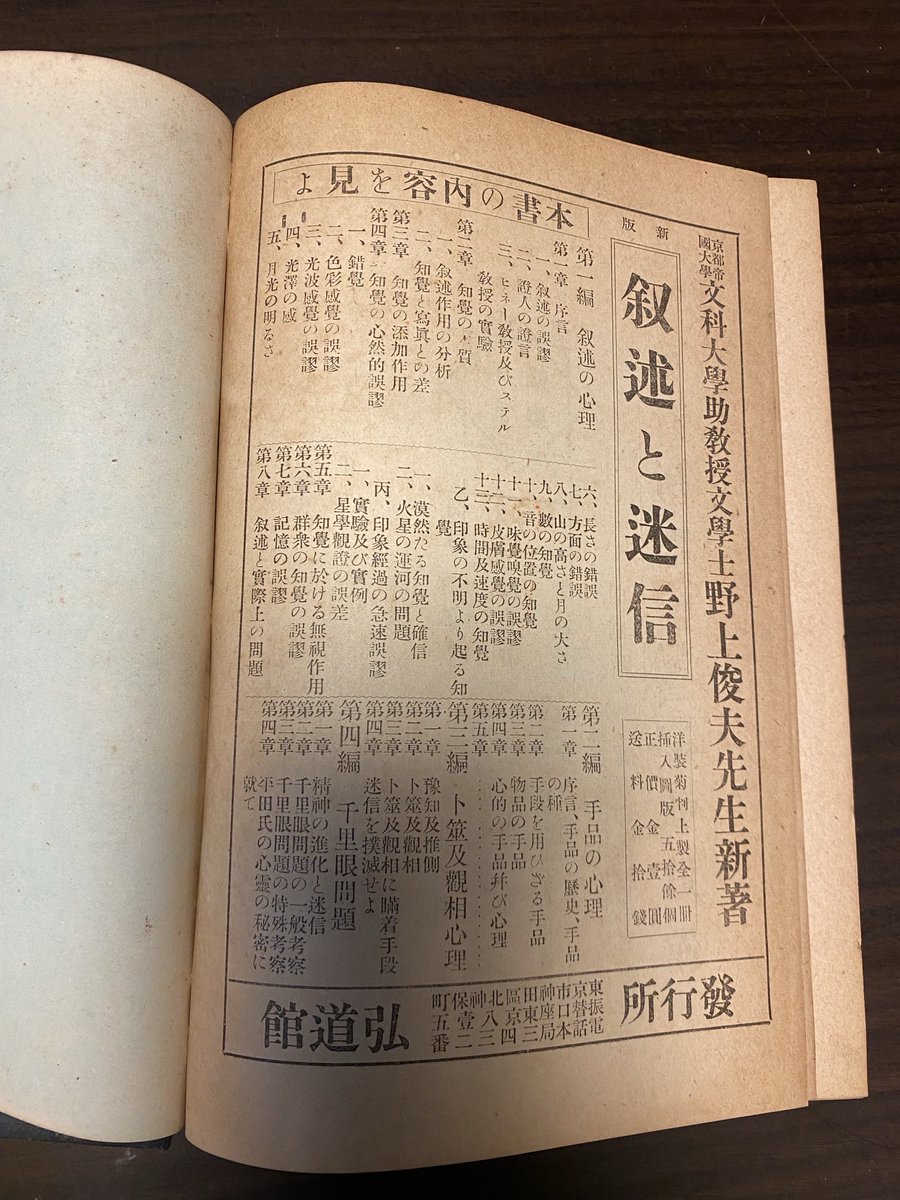 京都帝國大學文科大學助教授文學士野上俊夫先生新著
新版
叙述と迷信
洋裝菊判上製全一冊
挿入圖版五拾餘個
正價金壹圓
送料金拾錢
本書の內容を見よ
第一編 叙述の心理
第一章 序言
一、叙述の誤謬
二、證人の證言
三、ヒネー敎授及びステル
敎授の實驗
第二章 知覺の本質
一、叙述作用の分析
二、知覺と寫眞との差
第三章 知覺の添加作用
第四章 知覺の心然的誤謬
一、錯覺
二、色彩感覺の誤謬
三、光波感覺の誤謬
四、光澤の感
五、月光の明るさ
六、長さの錯誤
七、方面の錯誤
八、山の高さと月の大さ
九、數の知覺
十、音の位置の知覺
十一、味覺嗅覺の誤謬
十二、皮膚感覺の誤謬
十三、時間及速度の知覺
乙、印象の不明より起る知
覺
一、漠然たる知覺と確信
二、火星の運河の問題
丙、印象經過の急速誤謬
一、實驗及び實例
二、星學觀證の誤差
第五章 知覺に於ける無視作用
第六章 群衆の知覺の誤謬
第七章 記憶の誤謬
第八章 叙述と實際上の問題
第二編 手品の心理
第一章 序言、手品の歷史、手品
の種
第二章 手段を用ひざる手品
第三章 物品の手品
第四章 心的の手品幷び心理
第五章
第三編 卜筮及觀相心理
第一章 豫知及推測
第二章 卜筮及觀相
第三章 卜筮及觀相に瞞着手段
第四章 迷信を撲滅せよ
第四編 千里眼問題
第一章 精神の進化と迷信
第二章 千里眼問題の一般考察
第三章 千里眼問題の特殊考察
第四章 平田氏の心靈の秘密に
就て
發行所
東京市神田區北神保町五番
振替口座東京八壹
電話本局三四三二
弘道館